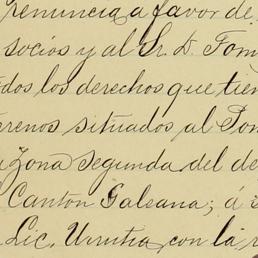 renuncia a favor de
socios y al Sr. D. Tom
dos los derechos que tien
errenos situados al Pon
Zona segunda del de
Canton Galeana; á
Lic. Urrutia, con la